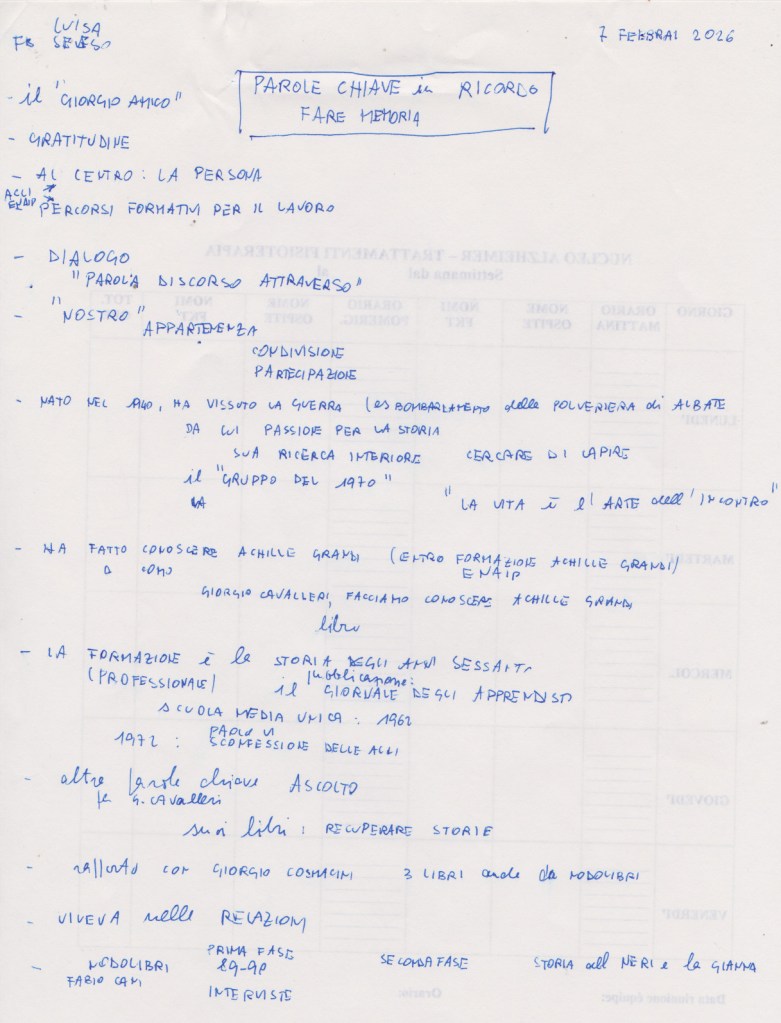 LUISA
FB SEVESO
7 FEBBRAI 2026
PAROLE CHIAVE in RICORDO
FARE MEMORIA
- il "GIORGIO AMICO"
- GRATITUDINE
- AL CENTRO: LA PERSONA
ACLI
ENAIP
PERCORSI FORMATIVI PER IL LAVORO
- DIALOGO
"PAROLA DISCORSO ATTRAVERSO"
- "NOSTRO"
APPARTENENZA
CONDIVISIONE
PARTECIPAZIONE
- NATO NEL 1940, HA VISSUTO LA GUERRA (es BOMBARDAMENTO della POLVERIERA di ALBATE
DA CUI PASSIONE PER LA STORIA
SUA RICERCA INTERIORE CERCARE DI CAPIRE
il "GRUPPO DEL 1970"
LA "LA VITA È l'ARTE dell'INCONTRO"
- HA FATTO CONOSCERE ACHILLE GRANDI (CENTRO FORMAZIONE ACHILLE GRANDI)
a COMO ENAIP
GIORGIO CAVALLERI, FACCIAMO CONOSCERE ACHILLE GRANDI
libro
- LA FORMAZIONE È la STORIA DEGLI ANNI SESSANTA
(PROFESSIONALE) pubblicazione:
il GIORNALE DEGLI APPRENDISTI
SCUOLA MEDIA UNICA: 1962
1972: PAOLO VI
SCONFESSIONE DELLE ACLI
- altre parole chiave ASCOLTO
per G. CAVALLERI
suoi libri: RECUPERARE STORIE
- rapporto con GIORGIO COSMACINI 3 LIBRI anche da NODOLIBRI
- VIVEVA nelle RELAZIONI
- NODOLIBRI PRIMA FASE SECONDA FASE STORIA del NERI e la GIANNA
FABIO CANI 89-90
INTERVISTE
NUCLEO ALZHEIMER – TRATTAMENTI FISIOTERAPIA
Settimana dal al
GIORNO ORARIO MATTINA NOME OSPITE NOMI FKT ORARIO POMERIG. NOME OSPITE NOMI FKT TOT.
LUNEDI'
MARTEDI'
MERCOL.
GIOVEDI'
VENERDI'
Data riunione équipe: Orario: